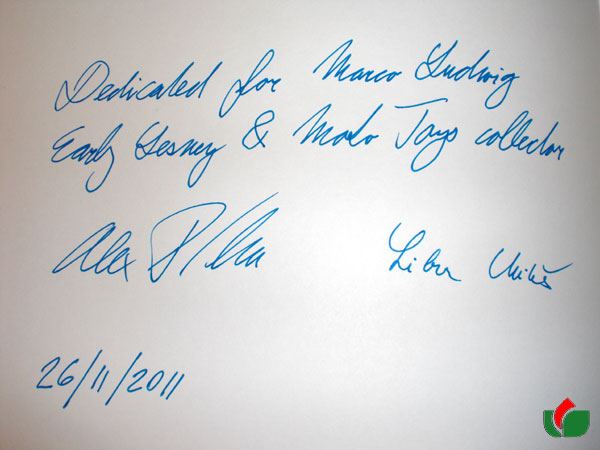 Dedicated for Marco Ludwig
Early Lesney & Moko Toys collector
Alex
Libor
26/11/2011